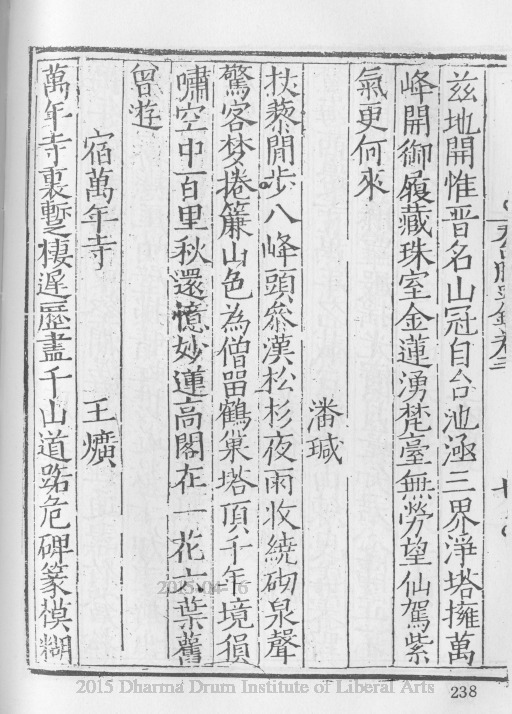 茲地開惟晋名山冠自台池涵三界淨塔擁萬
峰開御履藏珠室金蓮湧梵臺無勞望仙駕紫
氣更何來
潘瑊
扶藜閒步八峰頭參漢松杉夜雨收繞砌泉聲
驚客梦捲簾山色為僧留鶴巢塔頂千年境猿
嘯空中百里秋還憶妙蓮高閣在一花六葉舊
曾遊
宿萬年寺
王爌
萬年寺裏蹔棲遲歷盡千山道路危碑篆模糊
2015-04-16
2015 Dharma Drum Institute of Liberal Arts
238